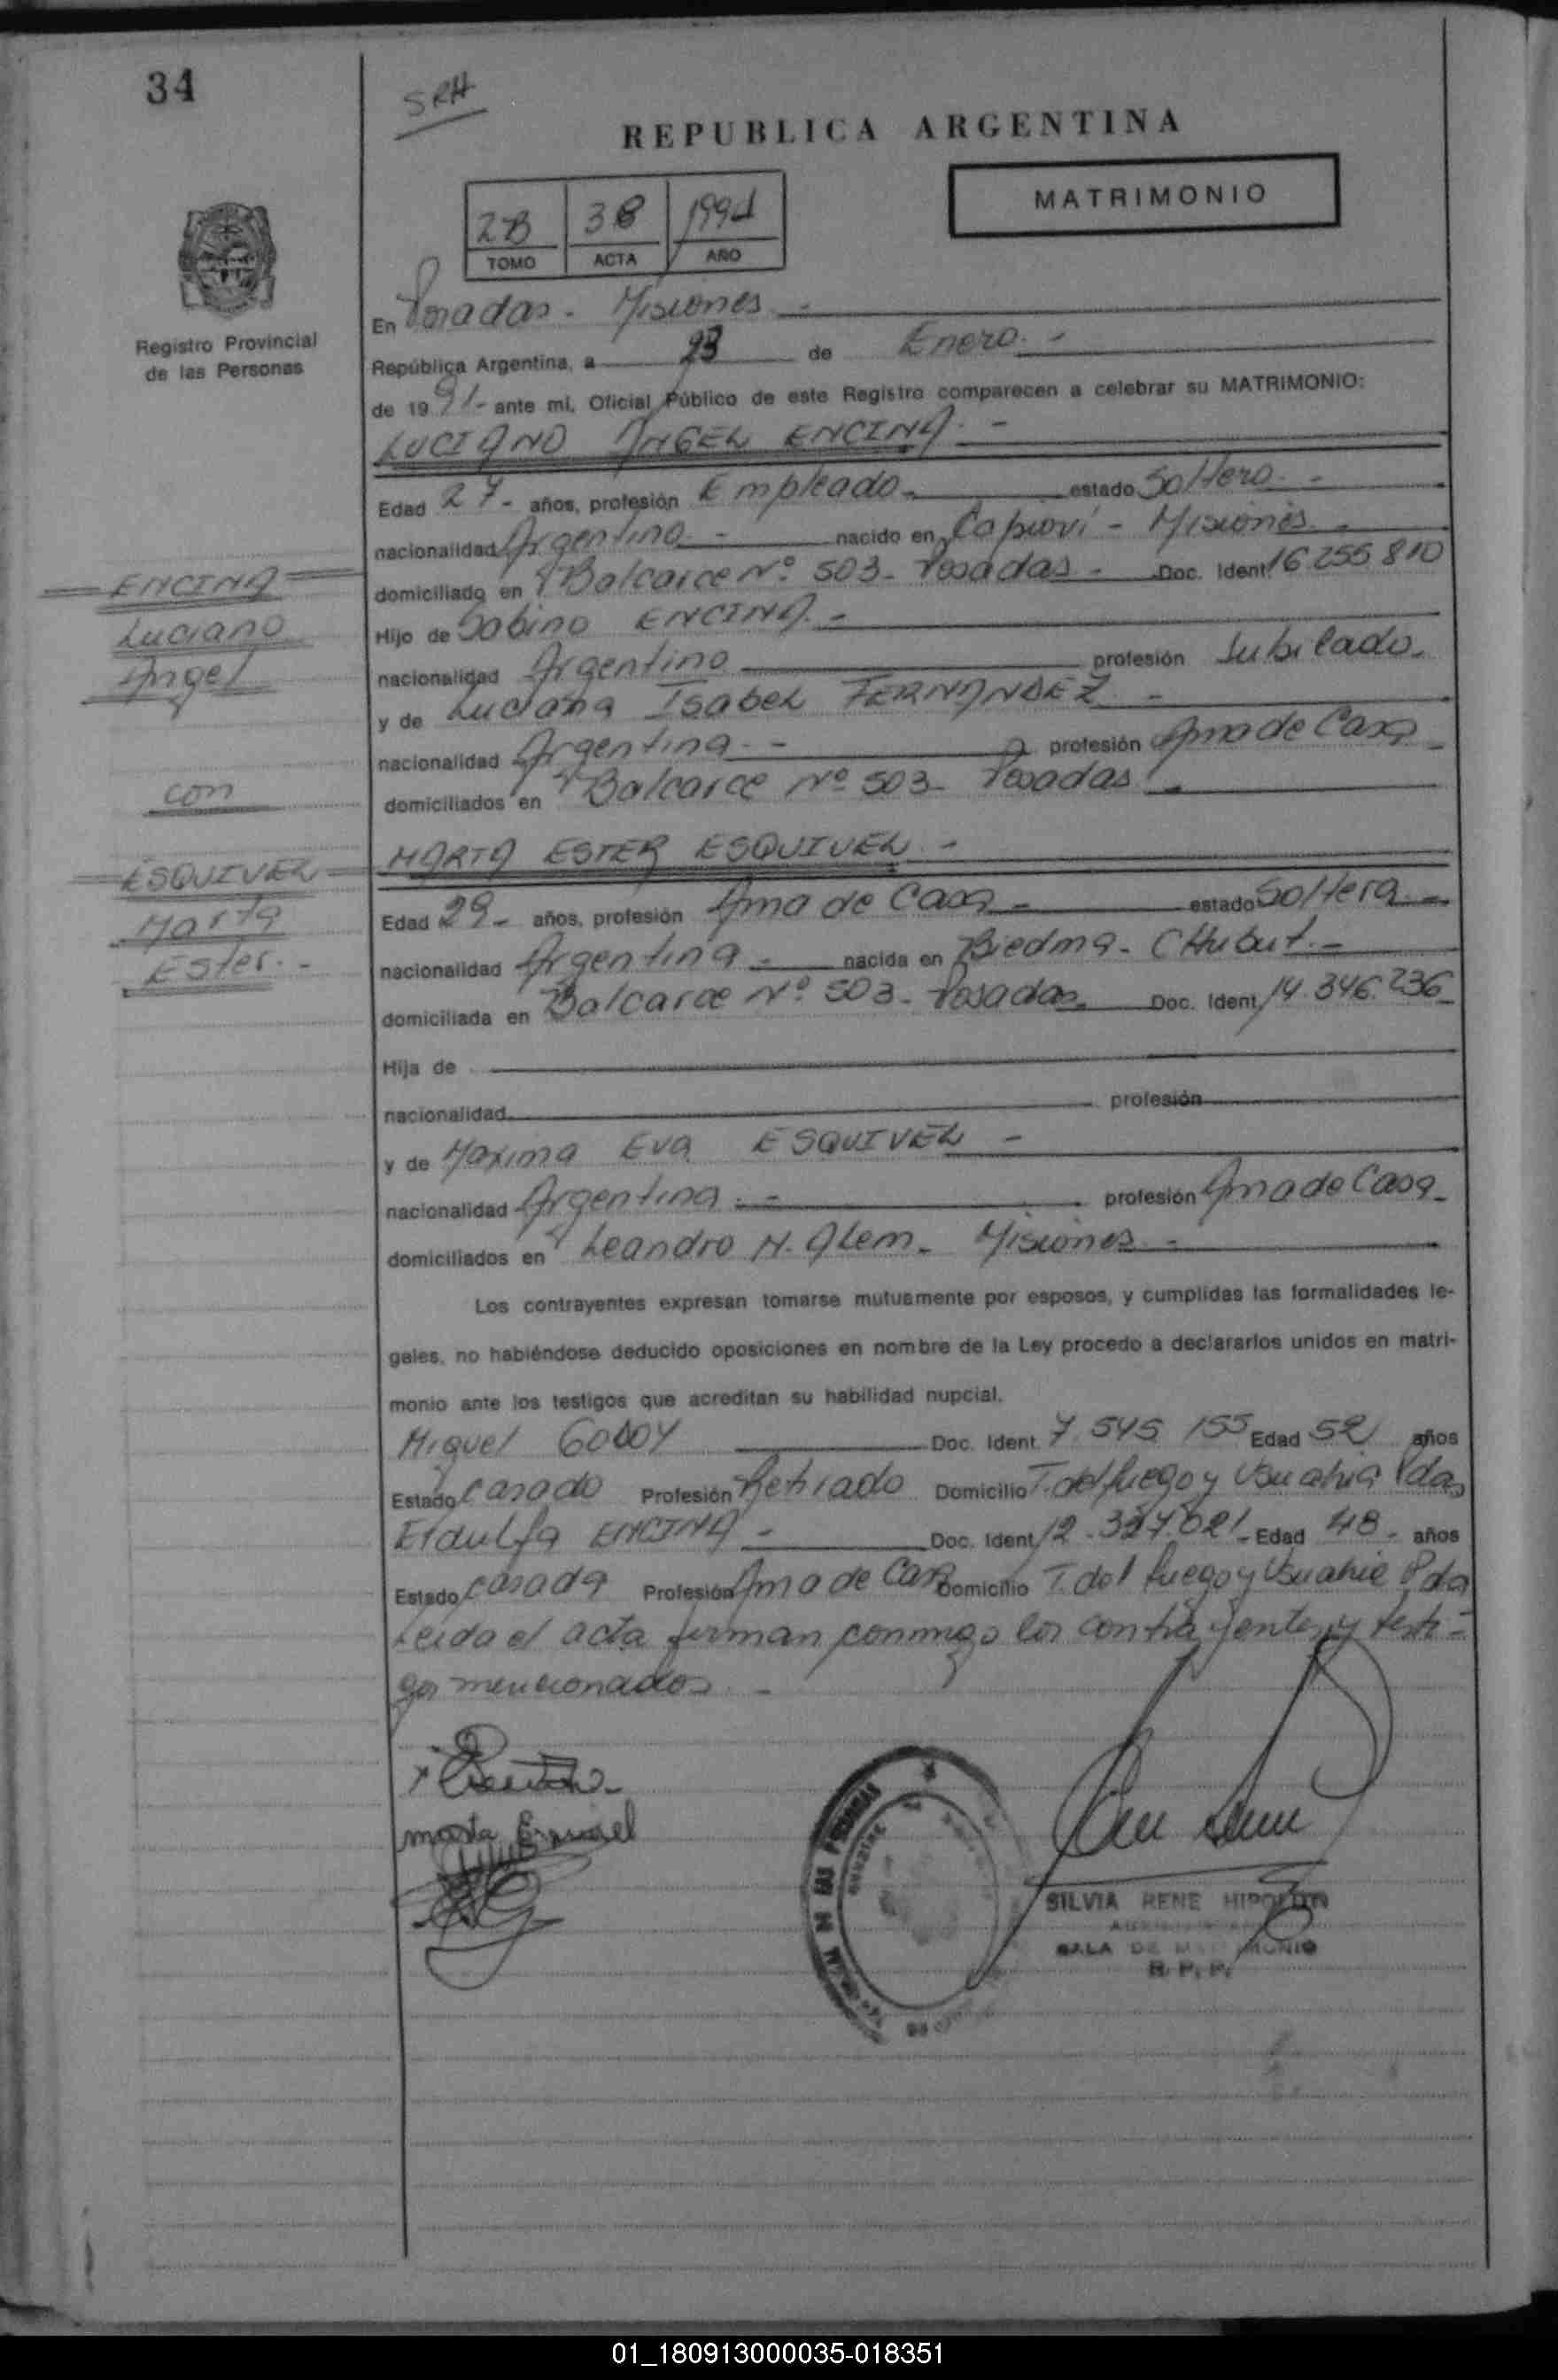 34
SRH
REPUBLICA ARGENTINA
MATRIMONIO
2B 38 1991
TOMO ACTA AÑO
Registro Provincial
de las Personas
En Posadas - Misiones -
República Argentina, a 23 de Enero. -
de 19 91 - ante mi, Oficial Público de este Registro comparecen a celebrar su MATRIMONIO:
LUCIANO ANGEL ENCINA. -
Edad 27 - años, profesión Empleado - estado Soltero. -
nacionalidad Argentino. - nacido en Capioví - Misiones. -
domiciliado en Balcarce Nº 503 - Posadas - Doc. Ident. 16.255.810
Hijo de Sabino ENCINA. -
nacionalidad Argentino profesión Jubilado.
y de Luciana Isabel FERNANDEZ. -
nacionalidad Argentina. - profesión Ama de Casa -
domiciliados en Balcarce Nº 503 - Posadas. -
ENCINA
Luciano
Angel
con
ESQUIVEL
Marta
Ester. -
MARTA ESTER ESQUIVEL. -
Edad 29 - años, profesión Ama de Casa - estado Soltera. -
nacionalidad Argentina - nacida en Biedma - CHubut. -
domiciliada en Balcarce Nº 503 - Posadas. Doc. Ident. 14.346.236
Hija de
nacionalidad profesión
y de Maxima Eva ESQUIVEL -
nacionalidad Argentina. - profesión Ama de Casa -
domiciliados en Leandro N. Alem - Misiones. -
Los contrayentes expresan tomarse mutuamente por esposos, y cumplidas las formalidades le-
gales, no habiéndose deducido oposiciones en nombre de la Ley procedo a declararlos unidos en matri-
monio ante los testigos que acreditan su habilidad nupcial.
Miguel GODOY Doc. Ident. 7.545.155 Edad 52 años
Estado Casado Profesión Retirado Domicilio T. del fuego y Usuahia Pdas
ENCINA - Doc. Ident. Edad 48 - años
Estado Casada Profesión Ama de Casa Domicilio T. del fuego y Usuahia Pda
Leida el acta firman conmigo los contrayentes y testi-
gos mencionados -
Marta Esquivel
SILVIA RENE HIPOLITO
SALA DE MATRIMONIO
R. P. P.
01_180913000035-018351